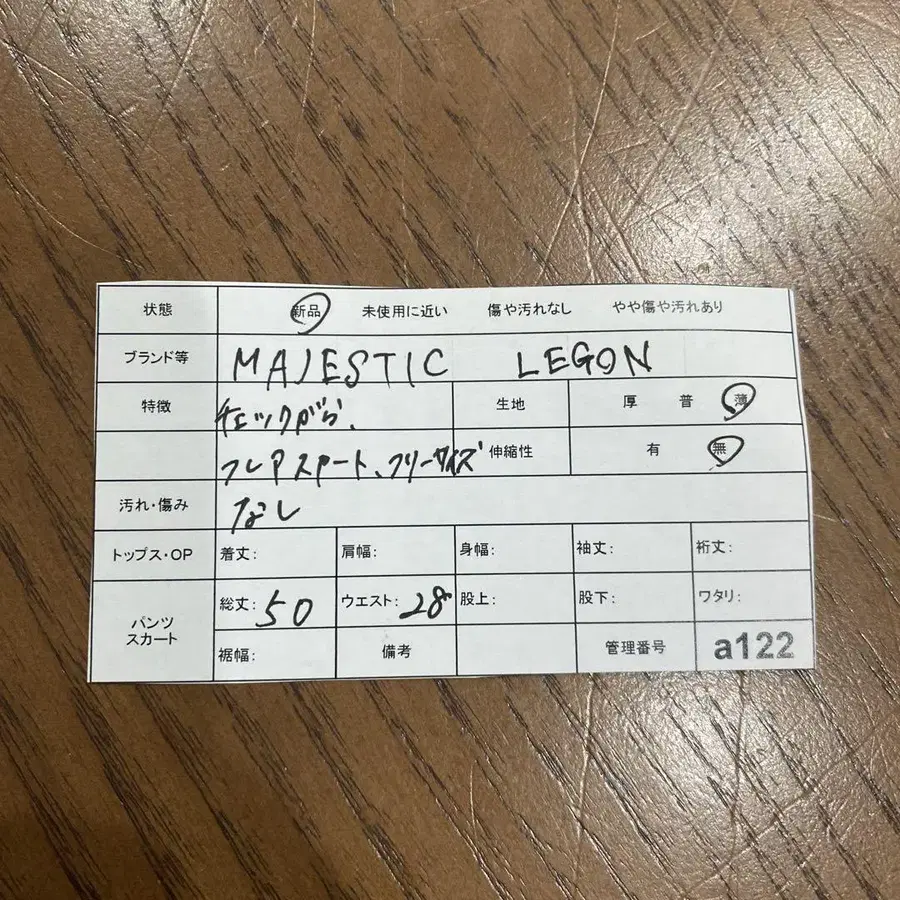 状態 新品 未使用に近い 傷や汚れなし やや傷や汚れあり
ブランド等 MAJESTIC LEGON
特徴 チェックがら、 生地 厚 普 薄
フレアスカート、フリーサイズ 伸縮性 有 無
汚れ・傷み なし
トップス・OP 着丈: 肩幅: 身幅: 袖丈: 裄丈:
パンツ スカート 総丈: 50 ウエスト: 28 股上: 股下: ワタリ:
裾幅: 備考 管理番号 a122